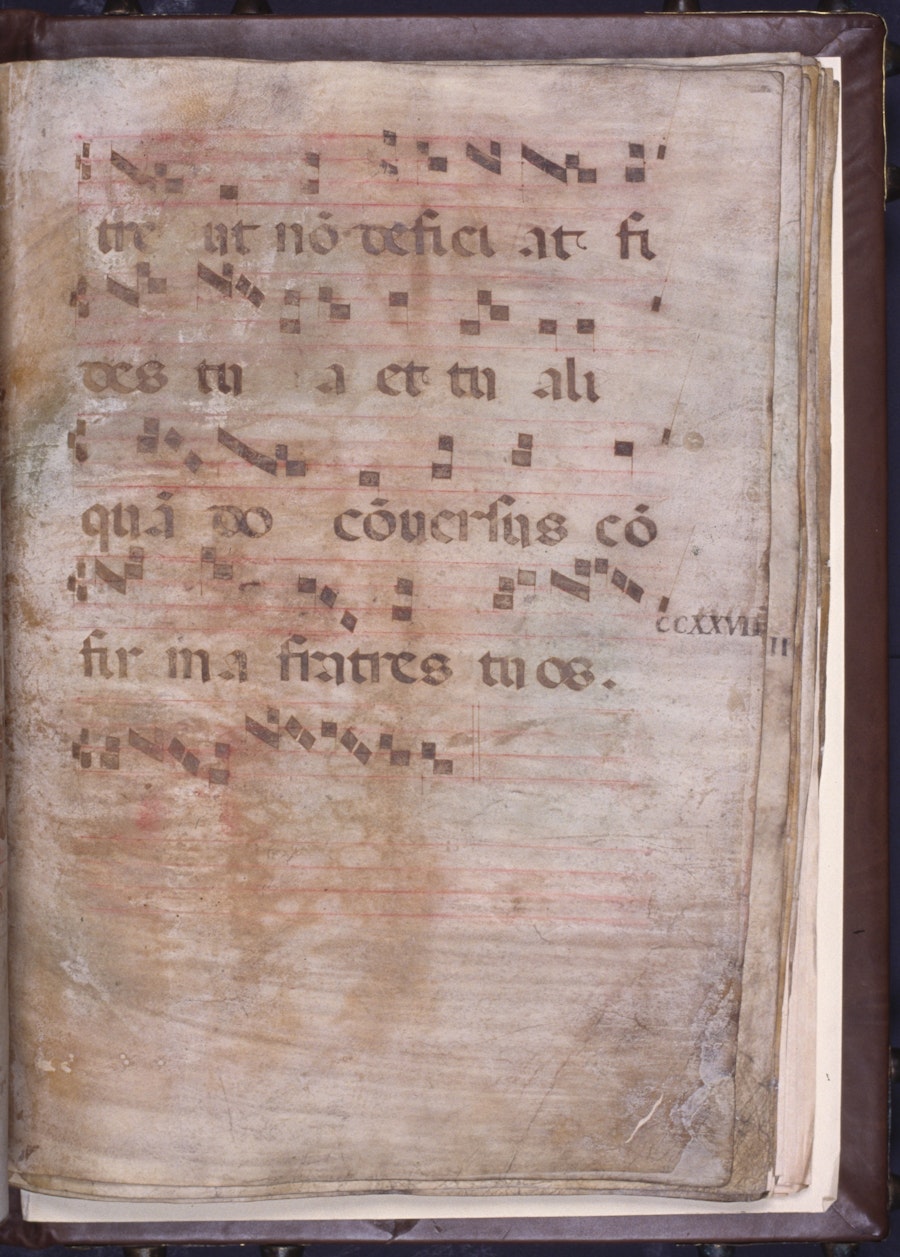 tre ut nō defici at fi
des tu a et tu ali
quā do cōuersus cō
fir ma fratres tuos.